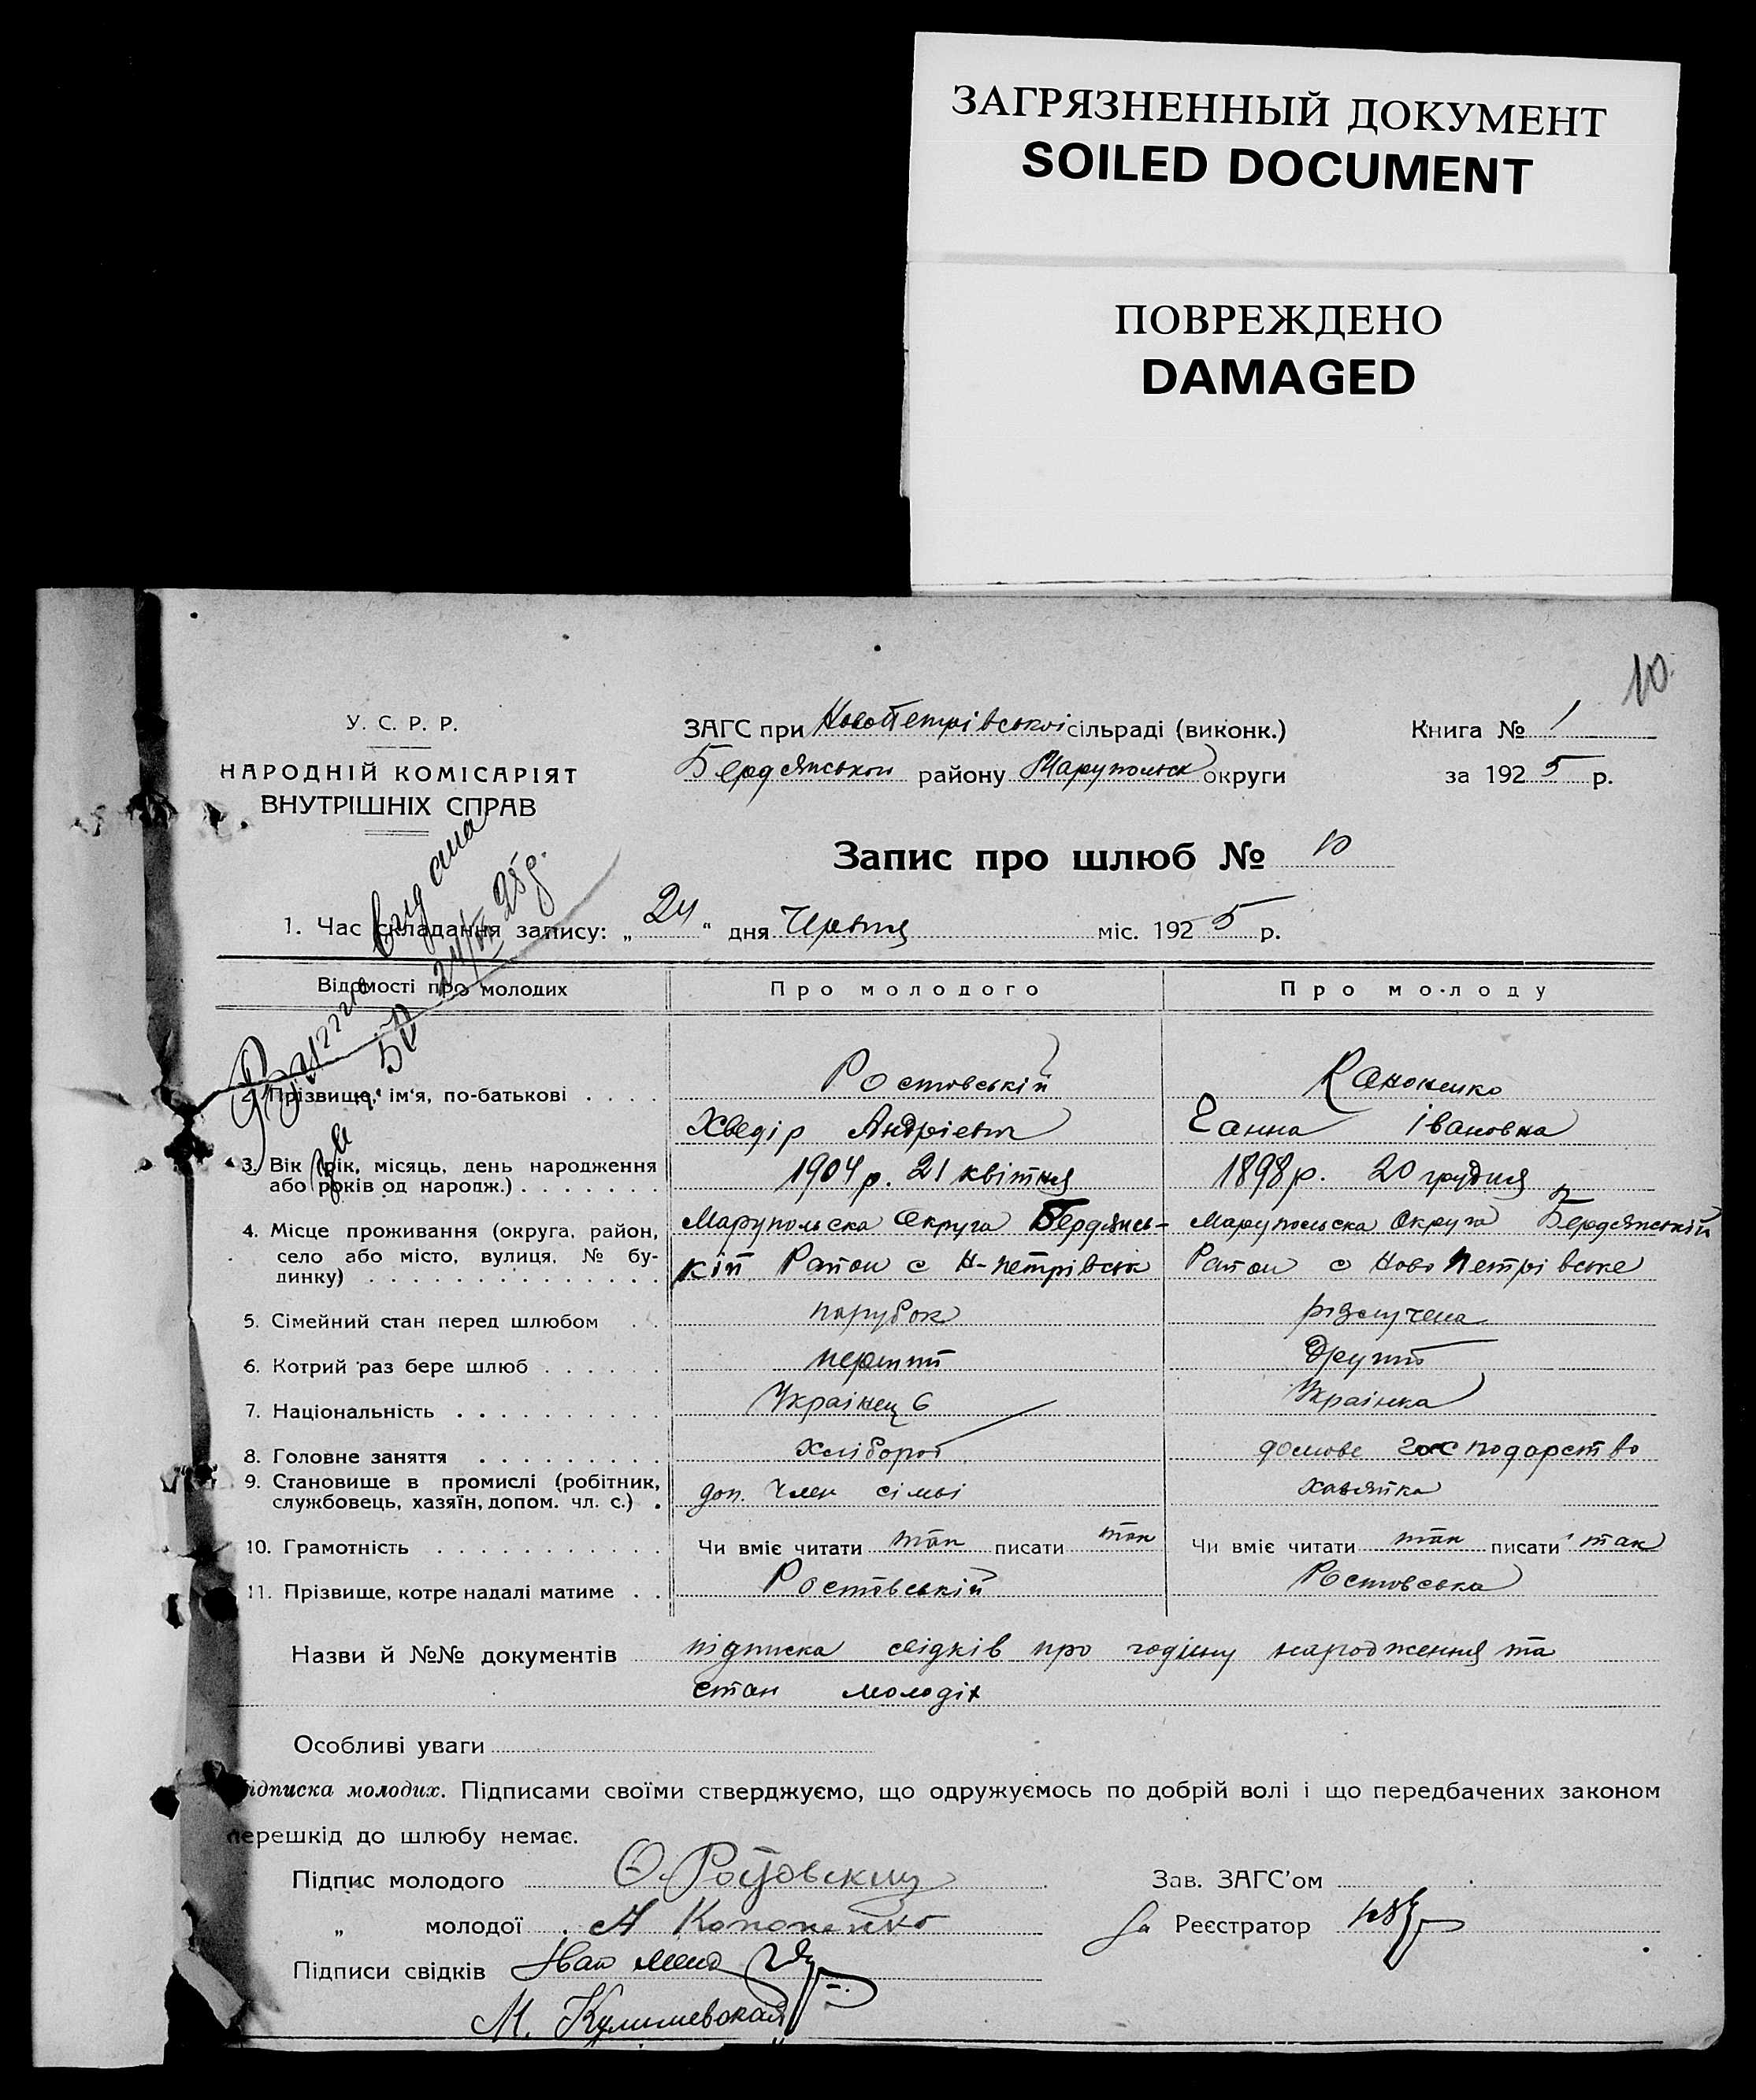 ЗАГРЯЗНЕННЫЙ ДОКУМЕНТ
SOILED DOCUMENT
ПОВРЕЖДЕНО
DAMAGED
10
У. С. Р. Р.
НАРОДНІЙ КОМІСАРІЯТ
ВНУТРІШНІХ СПРАВ
ЗАГС при НовоПетрівської сільраді (виконк.)
Бердянськои району Марупольск округи
Книга № 1
за 1925 р.
Запис про шлюб № 10
1. Час складання запису: „24“ дня Червня міс. 1925 р.
Видана
за № 50 24/VI 25 р.
Відомості про молодих
Про молодого
Про молоду
2. Прізвище, ім'я, по-батькові . . . .
Ростовській
Хведір Андріевич
Кононенко
Ганна Івановна
3. Вік (рік, місяць, день народження
або років од народж.) . . . . . . .
1904 р. 21 квітня
1898 р. 20 грудня
4. Місце проживання (округа, район,
село або місто, вулиця, № бу-
динку) . . . . . . . . . . . . . .
Марупольска Округа Бердянсь-
кій Район с Н-петрівськ
Марупольска Округа Бердянській
Район с Ново Петрівське
5. Сімейний стан перед шлюбом . .
парубок
розлучена
6. Котрий раз бере шлюб . . . . . .
перший
Другий
7. Національність . . . . . . . . . .
Украінець
Украінка
8. Головне заняття . . . . . . . . .
Хлібороб
домове господарство
9. Становище в промислі (робітник,
службовець, хазяїн, допом. чл. с.) .
доп. член сімьі
хазяйка
10. Грамотність . . . . . . . . . . .
Чи вміє читати так писати так
Чи вміє читати так писати так
11. Прізвище, котре надалі матиме . .
Ростовській
Ростовська
Назви й №№ документів підписка свідків про годину народження та
стан молодіх
Особливі уваги
Підписка молодих. Підписами своїми стверджуємо, що одружуємось по добрій волі і що передбачених законом
перешкід до шлюбу немає.
Підпис молодого Ѳ. Ростовский
„ молодої А Кононенко
Підписи свідків Иван
М. Кулишевская
Зав. ЗАГС'ом
За Реєстратор